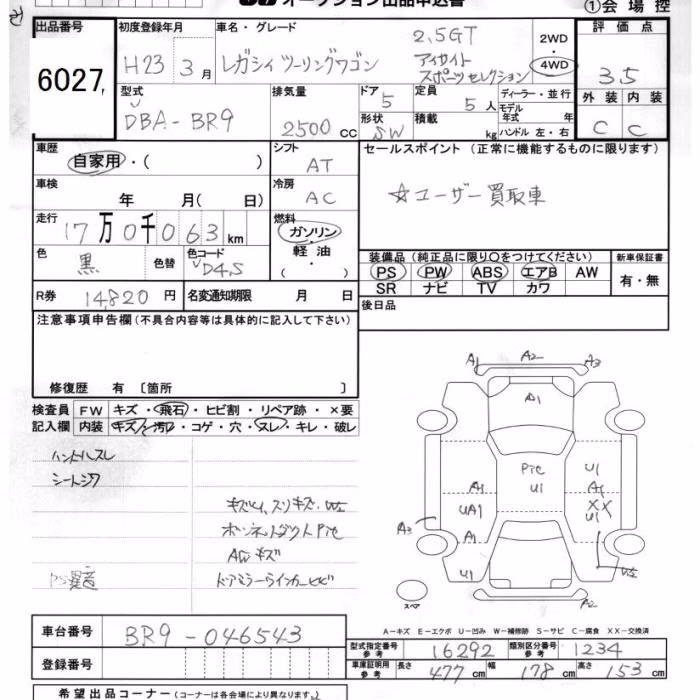 オークション出品申込書
①会場控
出品番号
6027
初度登録年月
H23 3月
車名・グレード
レガシィツーリングワゴン
2.5GT
アイサイト
スポーツセレクション
2WD
・
4WD
評価点
3.5
外装 内装
C C
型式
DBA-BR9
排気量
2500cc
ドア
5
形状
SW
定員
5人
積載
kg
ディーラー・並行
モデル
年式 年
ハンドル 左・右
車歴
自家用・( )
シフト
AT
セールスポイント(正常に機能するものに限ります)
☆ユーザー買取車
車検
年 月( 日)
冷房
AC
走行
17万0千063km
燃料
ガソリン
・
軽油
色
黒
色替
色コード
D4S
装備品(純正品に限り〇をつけてください)
PS PW ABS エアB AW
SR ナビ TV カワ
新車保証書
有・無
R券 14820円
名変通知期限 月 日
後日品
注意事項申告欄(不具合内容等は具体的に記入して下さい)
修復歴 有〔箇所 〕
検査員
記入欄
FW キズ・飛石・ヒビ割・リペア跡・×要
内装 キズ・汚レ・コゲ・穴・スレ・キレ・破レ
ハンドルスレ
シートシワ
ボンネットダクトPte
AWキズ
PS異音
ドアミラーウインカーヒビ
A1 A2 A3
A1
Pte
U1
U1
A1
XX
U1
A1
UA1
A1
A3
U1
スペア
A2
A-キズ E-エクボ U-凹み W-補修跡 S-サビ C-腐食 XX-交換済
車台番号
BR9-046543
登録番号
型式指定番号
参考
16292
類別区分番号
参考
1234
車庫証明用
参考
長さ 477cm 幅 178cm 高さ 153cm
希望出品コーナー(コーナーは各会場により異なります。)